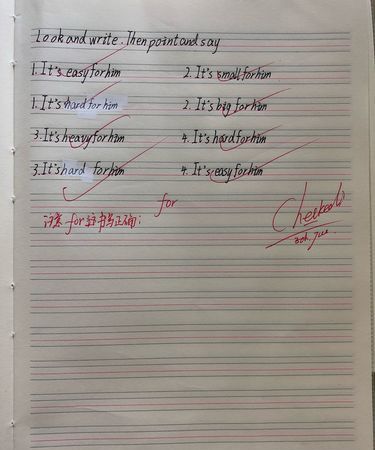 Look and write. Then point and say
1. It's easy for him 2. It's small for him
1. It's hard for him 2. It's big for him
3. It's heavy for him 4. It's hard for him
3. It's hard for him 4. It's easy for him
for
注意 for 书写正确:
Checked
3rd. Jun.